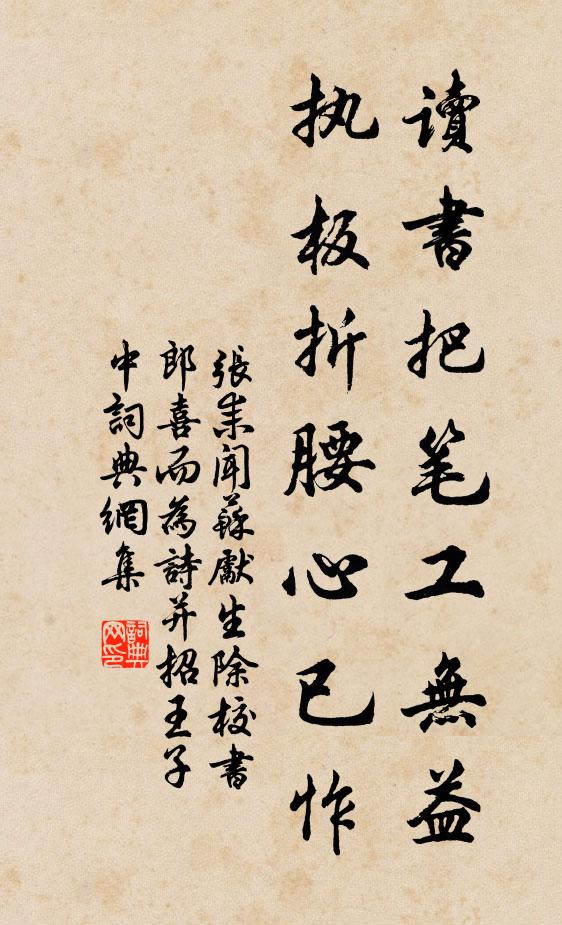 讀書把笔工無益
执板折腰心已怍
張耒聞蘇獻生除校書
郎喜而為詩并招王子
中詞典網集
詞典
网印